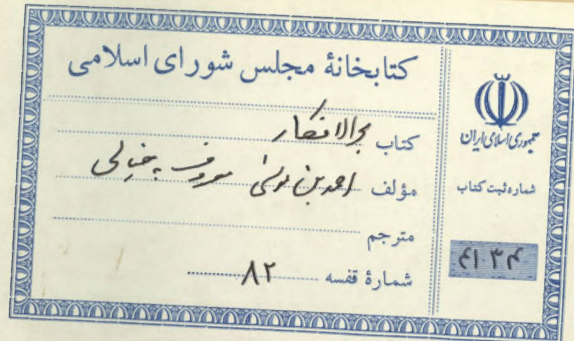 کتابخانهٔ مجلس شورای اسلامی
کتاب بحرالافکار
مؤلف احمد بن موسی معروف بخیالی
مترجم
شمارهٔ قفسه ۸۲
جمهوری اسلامی ایران
شماره ثبت کتاب
۴۱۳۴